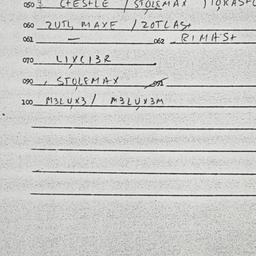 050 CTESTLE / STOLEMAX
060 ZUTL MAXE / ZOTLAS+
061 —
062 RIMAS+
070 LIXCI3R
090 STOLEMAX
100 M3LUX3 / M3LUX3M